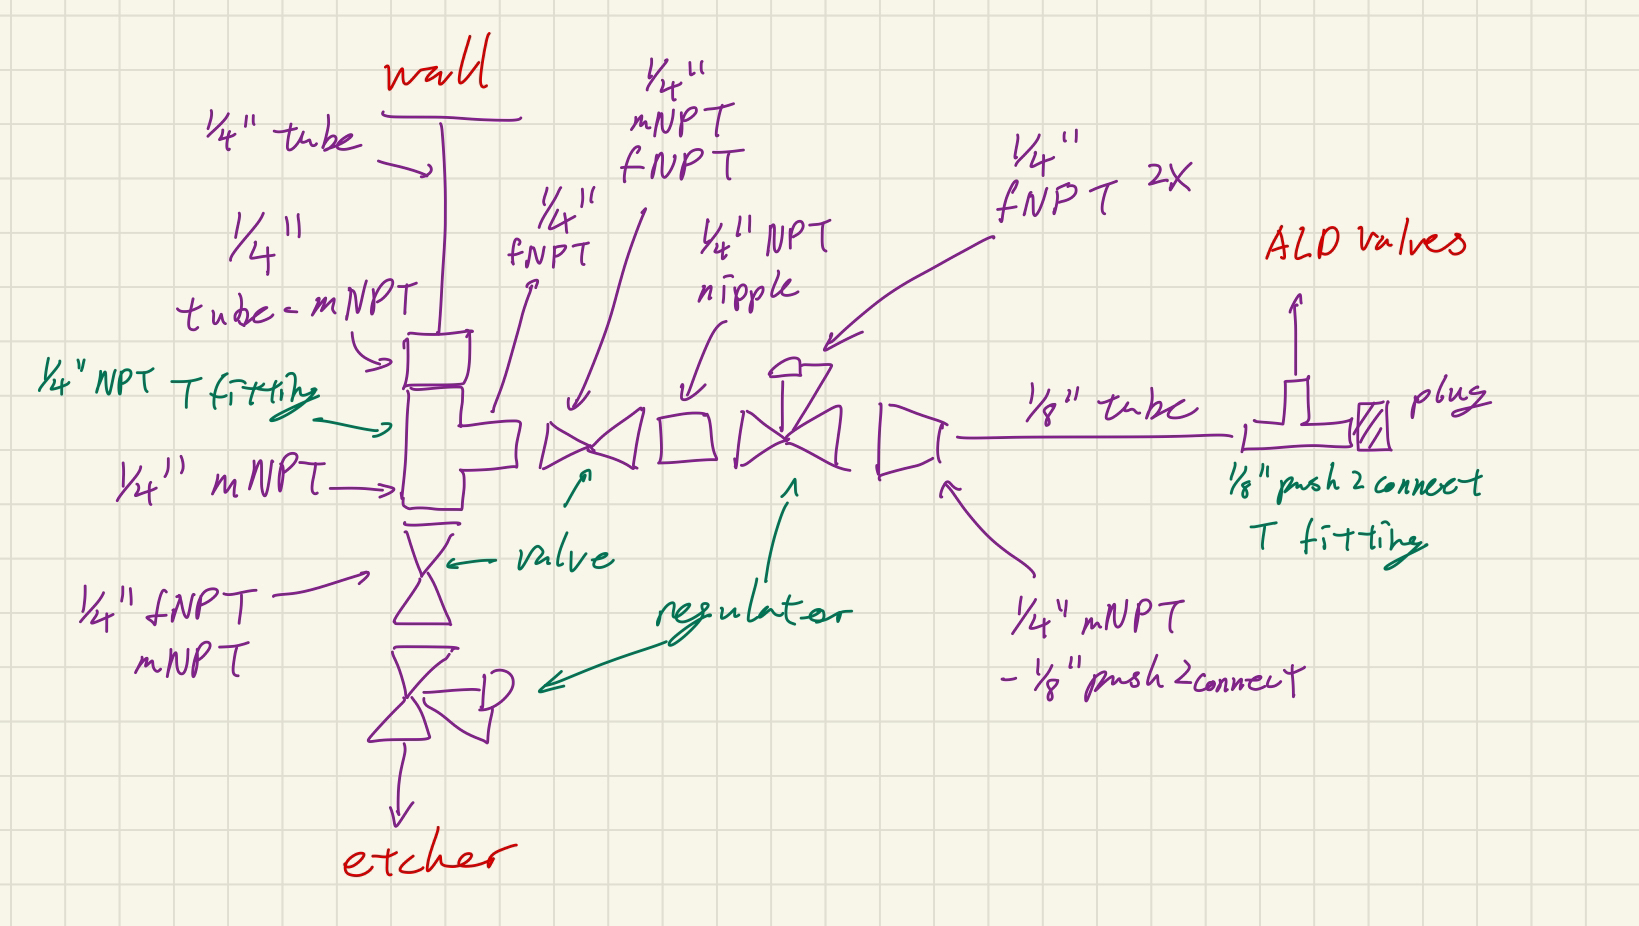 wall
1/4" tube
1/4"
mNPT
fNPT
1/4"
fNPT 2X
1/4"
fNPT
1/4" NPT
nipple
ALD valves
1/4"
tube - mNPT
1/4" NPT T fitting
1/8" tube
plug
1/4" mNPT
1/8" push 2 connect
T fitting
valve
1/4" fNPT
mNPT
regulator
1/4" mNPT
- 1/8" push 2 connect
etcher